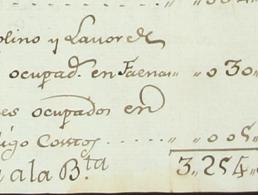 olino y Lavores
ocupad.ˢ en Faenas „ „ 030 „
es ocupados en
igo Cortos „ „ 005 „
a la B.ᵗᵃ 3.254 „